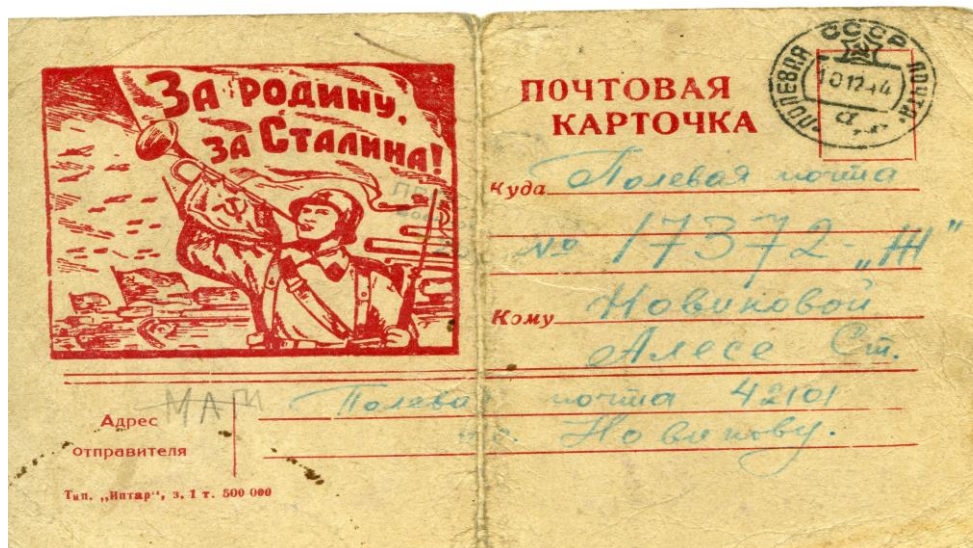 За родину,
за Сталина!
ПОЧТОВАЯ
КАРТОЧКА
ПОЛЕВАЯ ПОЧТА
СССР
10 12 44
Куда Полевая почта
№ 17372-„Ж"
Кому Новиковой
Алесе Ст.
МАГИ
Адрес
отправителя
Полевая почта 42101
Новикову.
Тип. „Интар", з. 1 т. 500 000